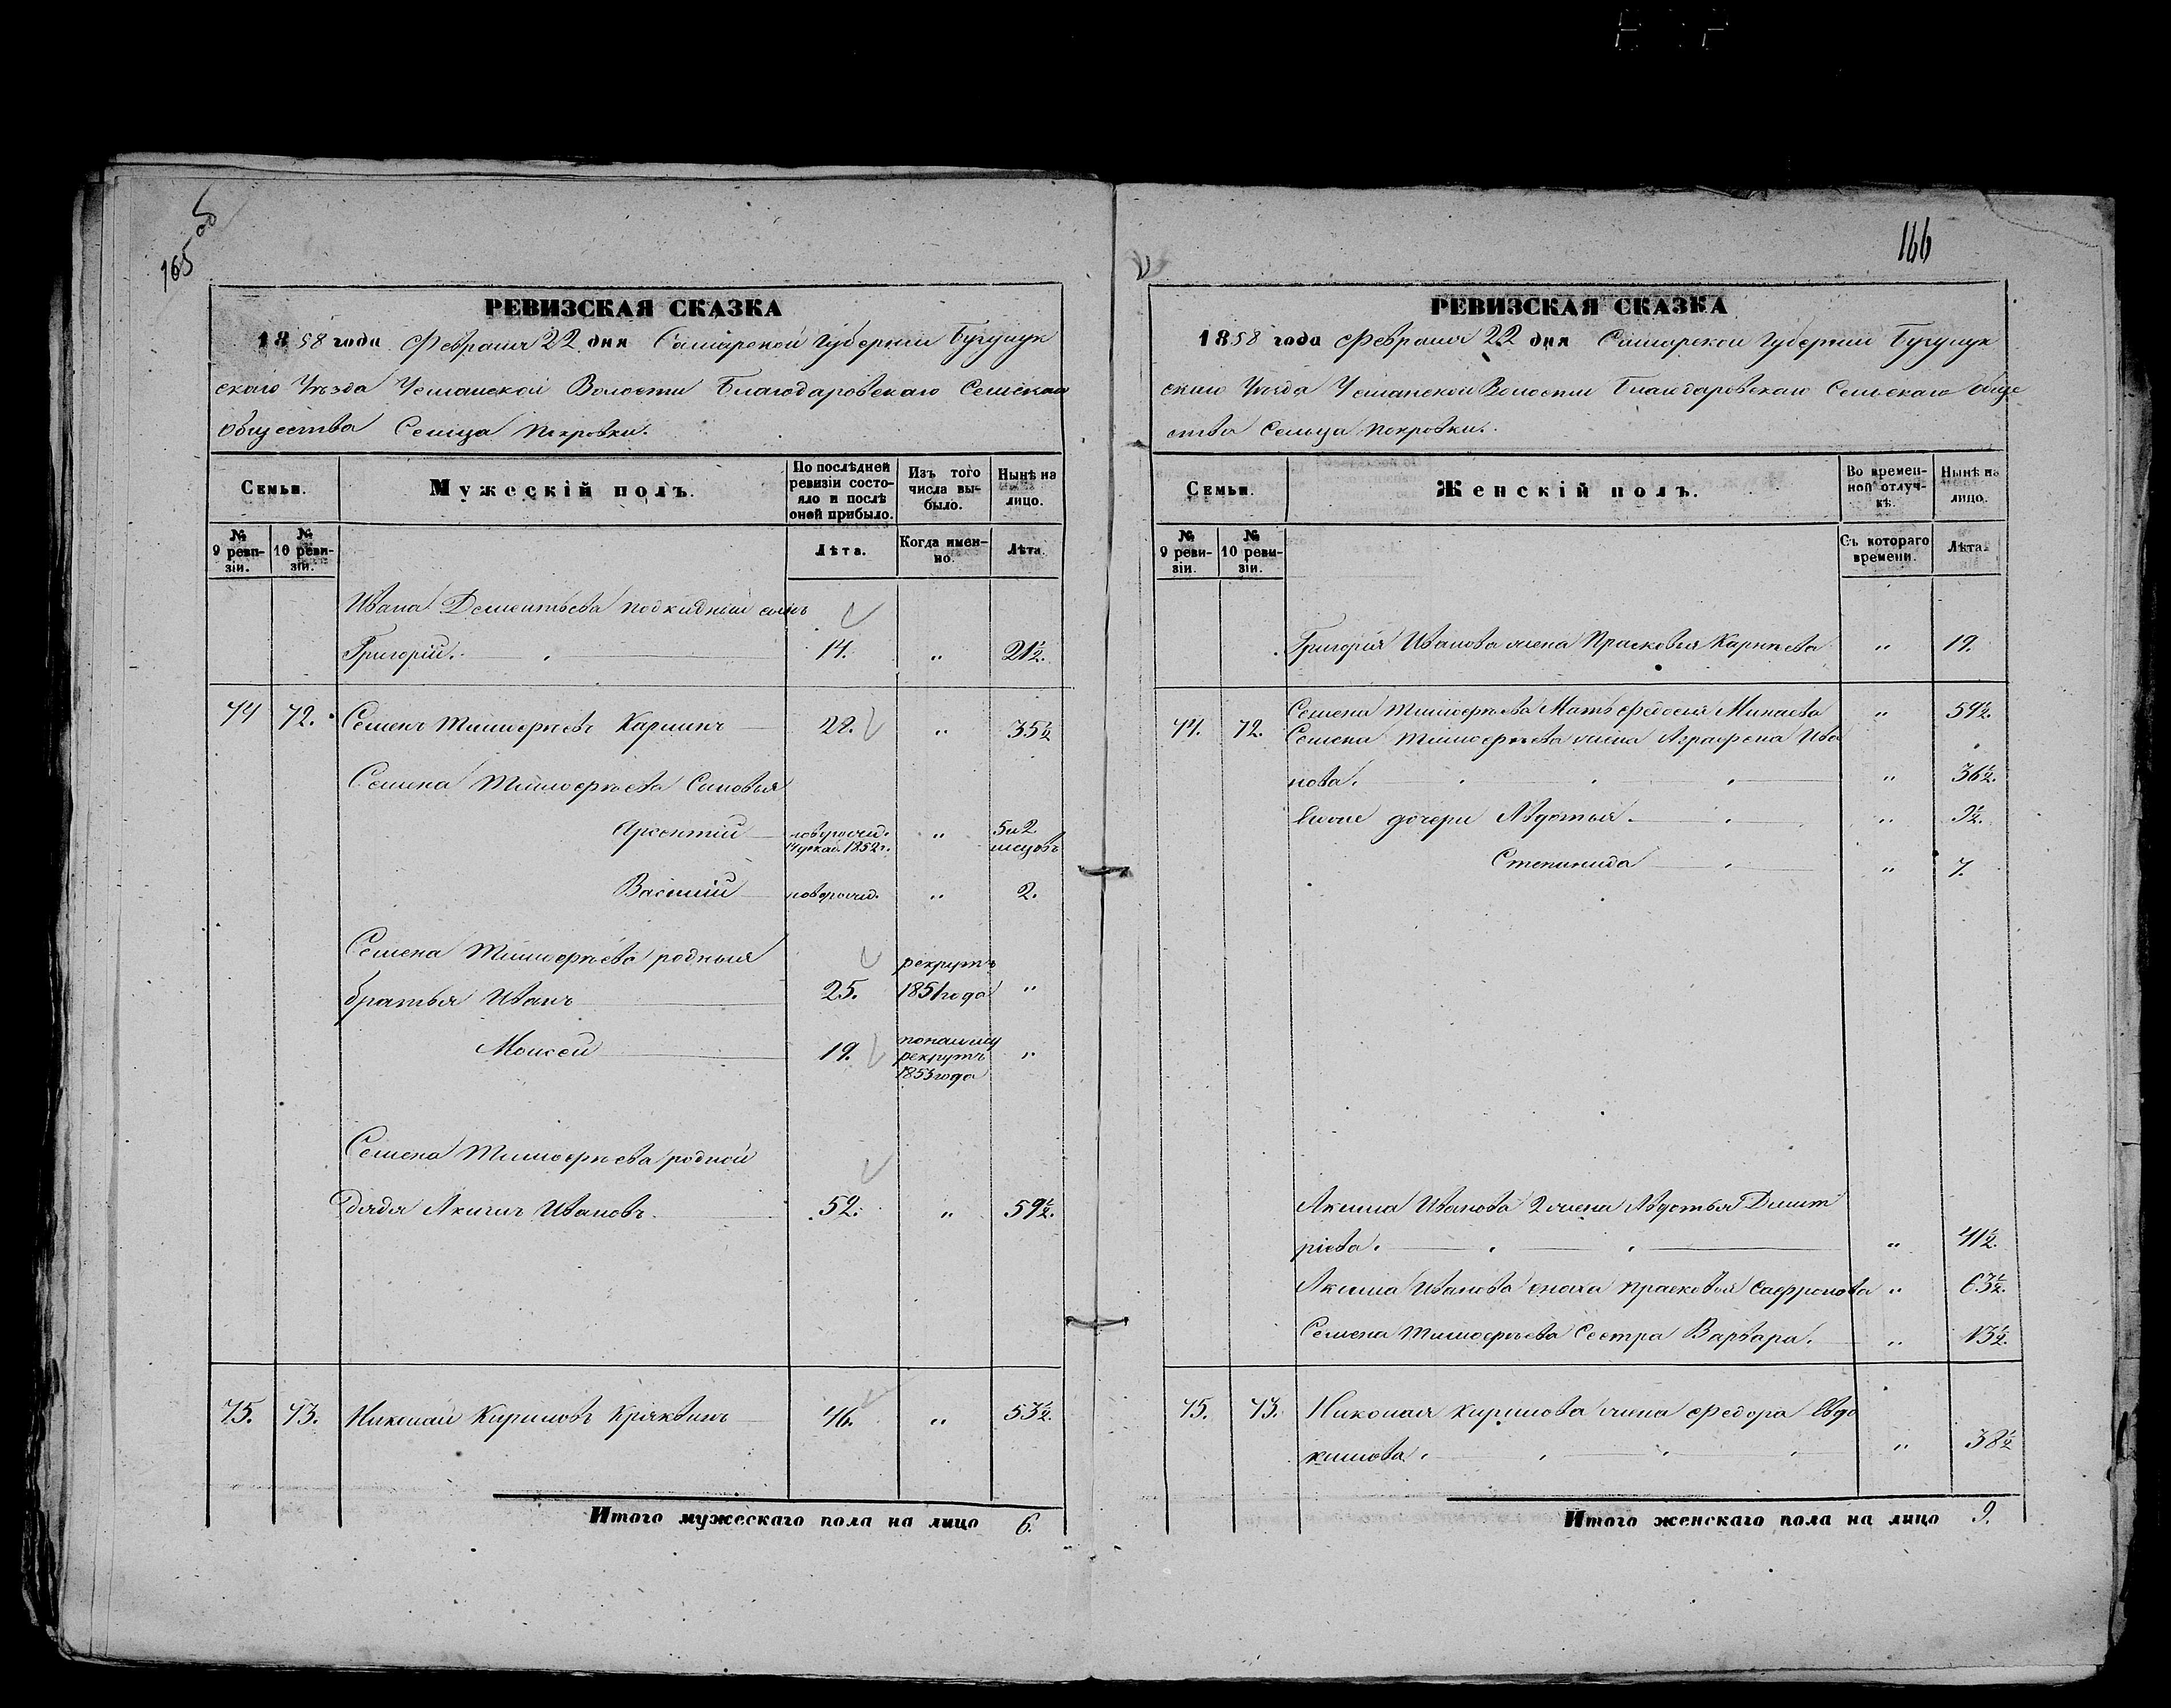 165 об
РЕВИЗСКАЯ СКАЗКА
1858 года Февраля 22 дня Самарской Губернии Бугурук
скаго Уѣзда Чеманской Волости Благодаровскаго Сельскаго
общества Сельца Покровки.
Семьи.
Мужескій полъ.
По послѣдней ревизіи состояло и послѣ оной прибыло.
Изъ того числа выбыло.
Нынѣ на лицо.
№ 9 ревизіи.
№ 10 ревизіи.
Лѣта.
Когда именно.
Лѣта.
Ивана Дементьева подкидній сынъ
Григорій. 14. " 21½.
74 72. Семенъ Тимофѣевъ Каршинъ 28. " 35½
Семена Тимофѣева Сыновья
Арсентій новорожд. " 5 и 2
1852 г. месецовъ
Василій новорожд. " 2.
Семена Тимофѣева родныя рекрутъ
братья Иванъ 25. 1851 года "
Моисей 19. рекрутъ "
года
Семена Тимофѣева родной
Дядя Акимъ Ивановъ 52. " 59½.
75. 73. Николай Кириловъ Кряквинъ 46. " 53½.
Итого мужескаго пола на лицо 6.
166
РЕВИЗСКАЯ СКАЗКА
1858 года Февраля 22 дня Самарской Губерніи Бугурук
скаго Уѣзда Чеманской Волости Благодаровскаго Сельскаго обще
ства Сельца Покровки.
Семьи.
Женскій полъ.
Во временной отлучкѣ.
Нынѣ на лицо.
№ 9 ревизіи.
№ 10 ревизіи.
Съ котораго времени.
Лѣта.
Григорія Иванова жена Прасковья Карпѣева " 19.
74. 72. Семена Тимофѣева Мать Федосья Минаева " 59½.
Семена Тимофѣева жена Аграфена Ива
нова. " 36½.
Евоне дочери Авдотья. " 9½.
Степанида " 7.
Акима Иванова 2 жена Авдотья Дмит
ріева. " 41½.
Акима Иванова сноха Прасковья Сафронова " 63½.
Семена Тимофѣева Сестра Варвара. " 13½.
75. 73. Николая Кирилова жена Федора Евдо
кимова. " 38½
Итого женскаго пола на лицо 9.